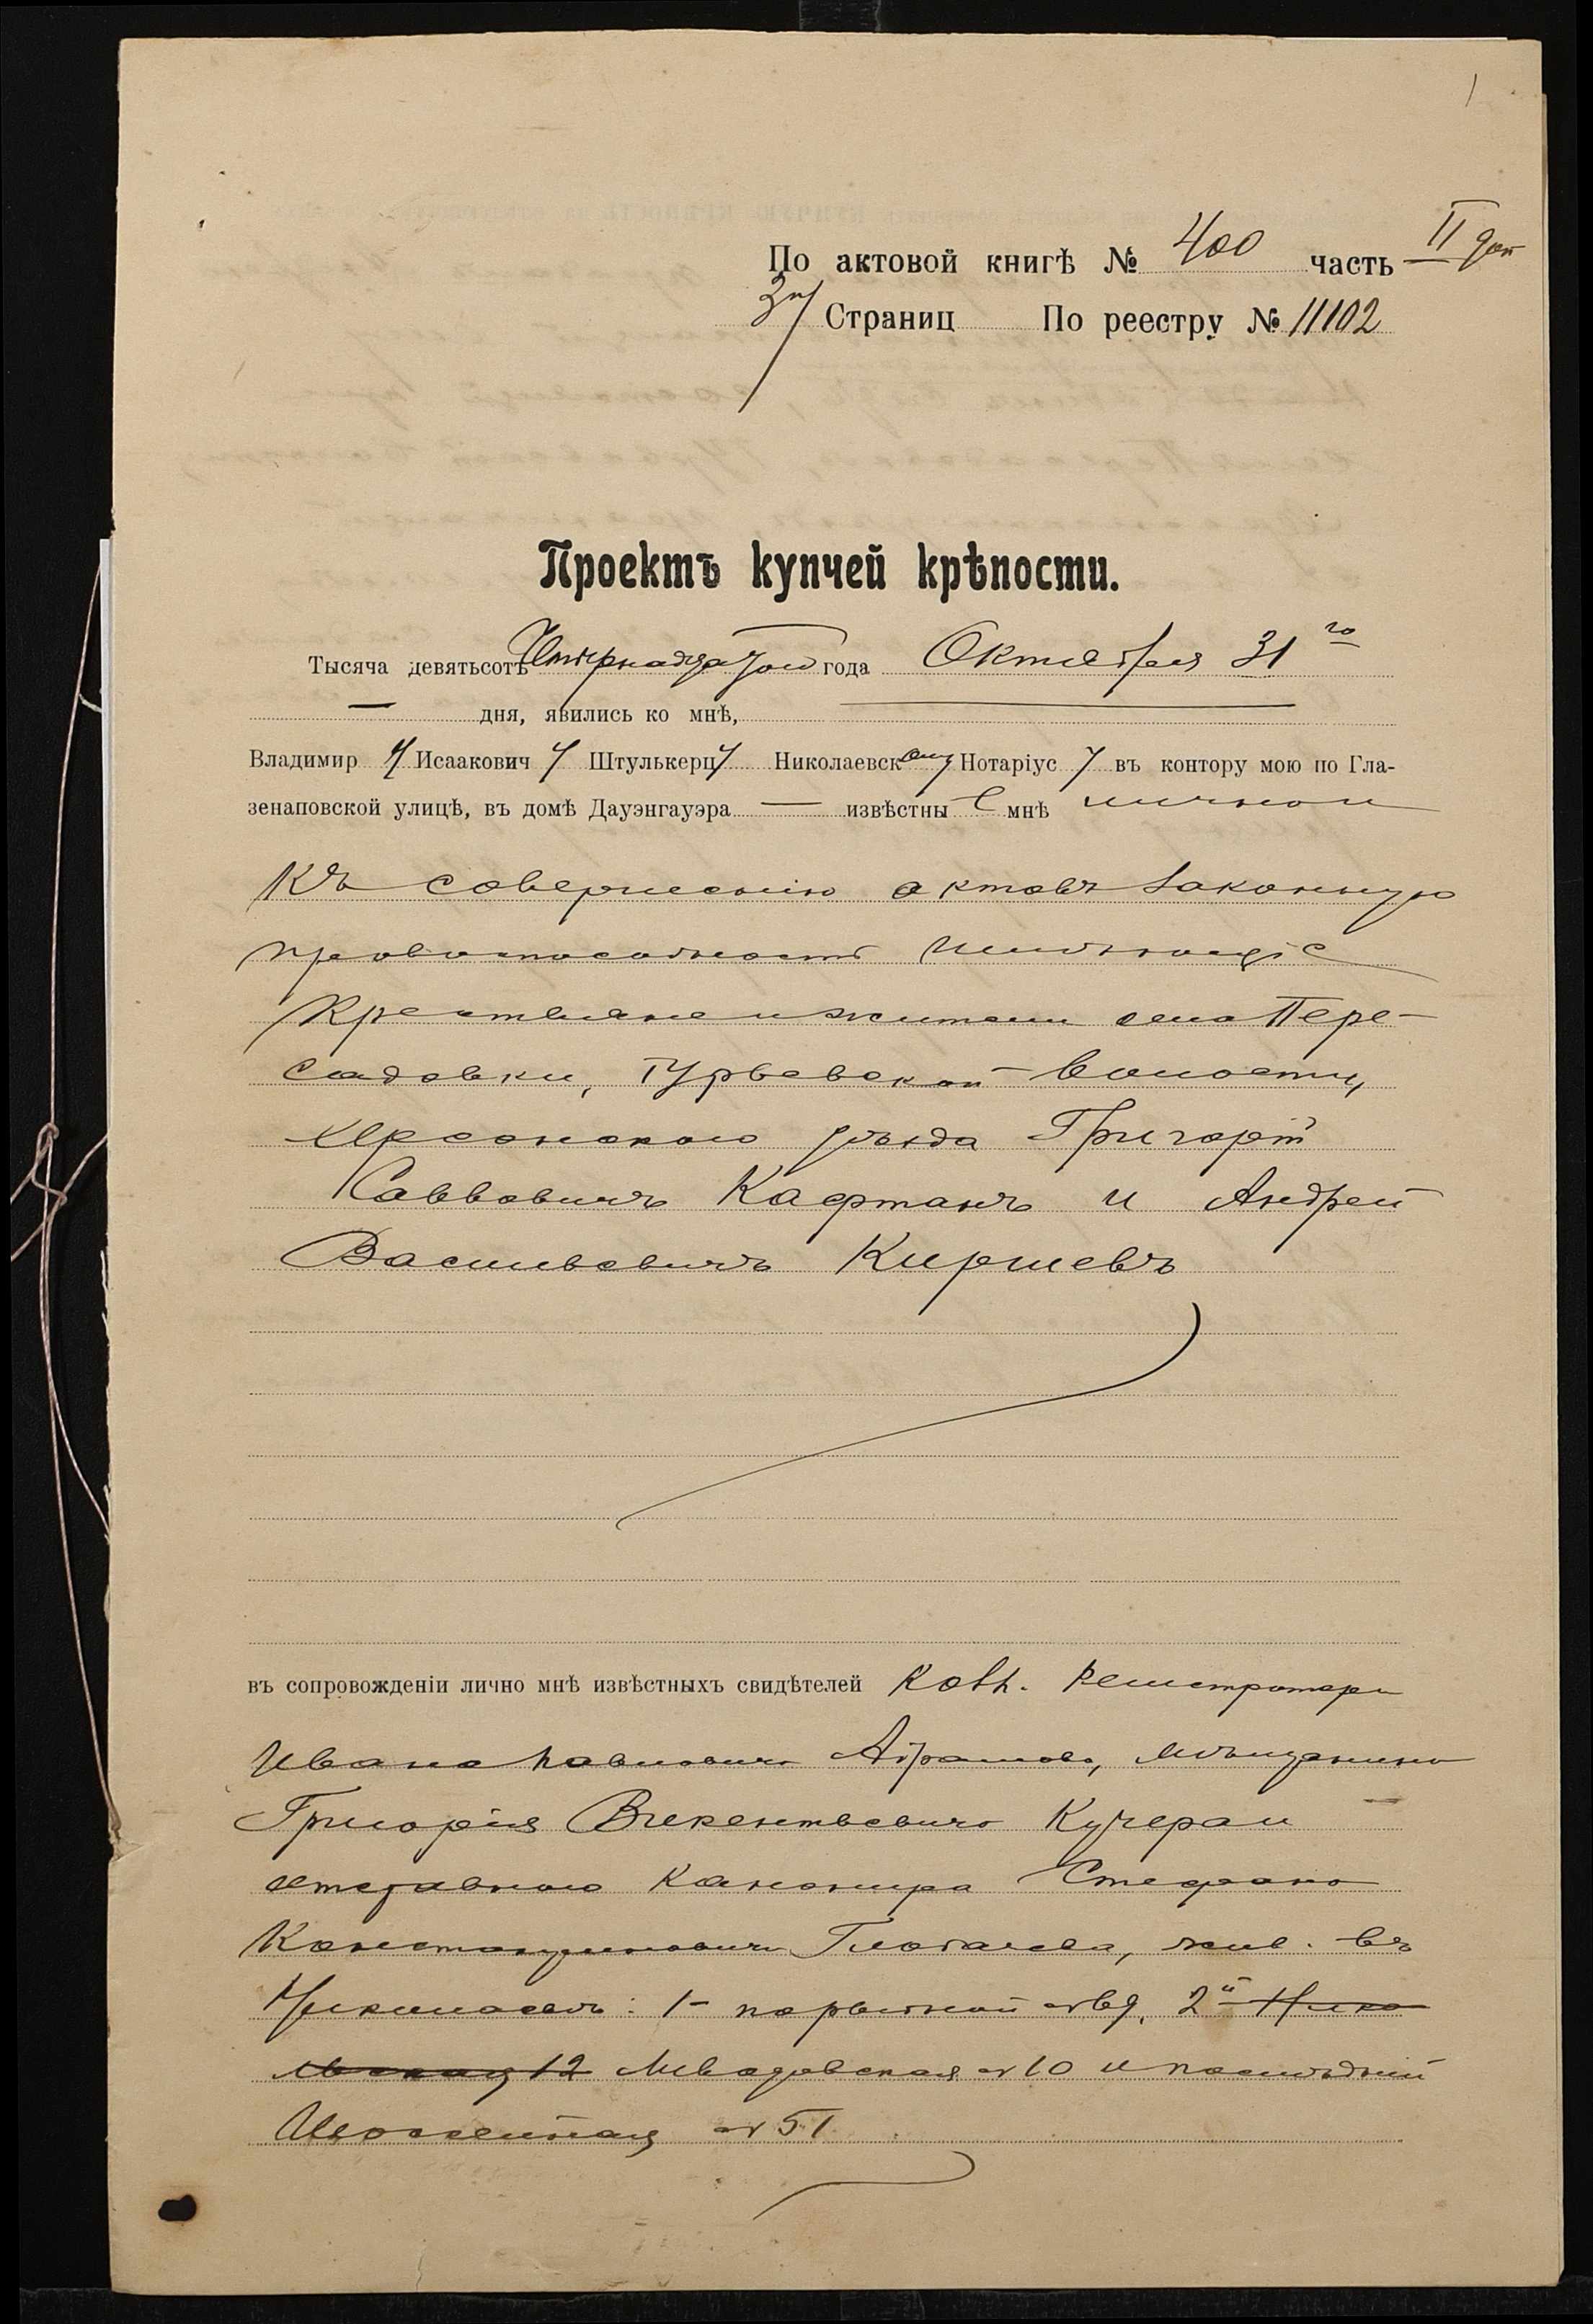 1
По актовой книгѣ № 400 часть II
Страниц По реестру № 11102
Проектъ купчей крѣпости.
Тысяча девятьсотъ четырнадцатого года Октября 31 го
— дня, явились ко мнѣ,
Владимиру Исааковичу Штулькерцу Николаевскому Нотаріусу въ контору мою по Гла-
зенаповской улицѣ, въ домѣ Дауэнгауэра — извѣстные мнѣ лично и
къ совершенію актовъ законную
правоспособность имѣющіе
крестьяне и жители села Пере-
садовки, Гурьевской волости,
Херсонского уѣзда Григорій
Саввовичъ Кафтанъ и Андрей
Васильевичъ Киршевъ
въ сопровожденіи лично мнѣ извѣстныхъ свидѣтелей Регистратора
Ивана Павловича Абрамова, мѣщанина
Григорія Викентьевича Кучера и
отставного канонира Стефана
Константиновича Глобачева, жив. въ
Николаевѣ: 1- 2й Нико
льская 12 10 и послѣдній
51